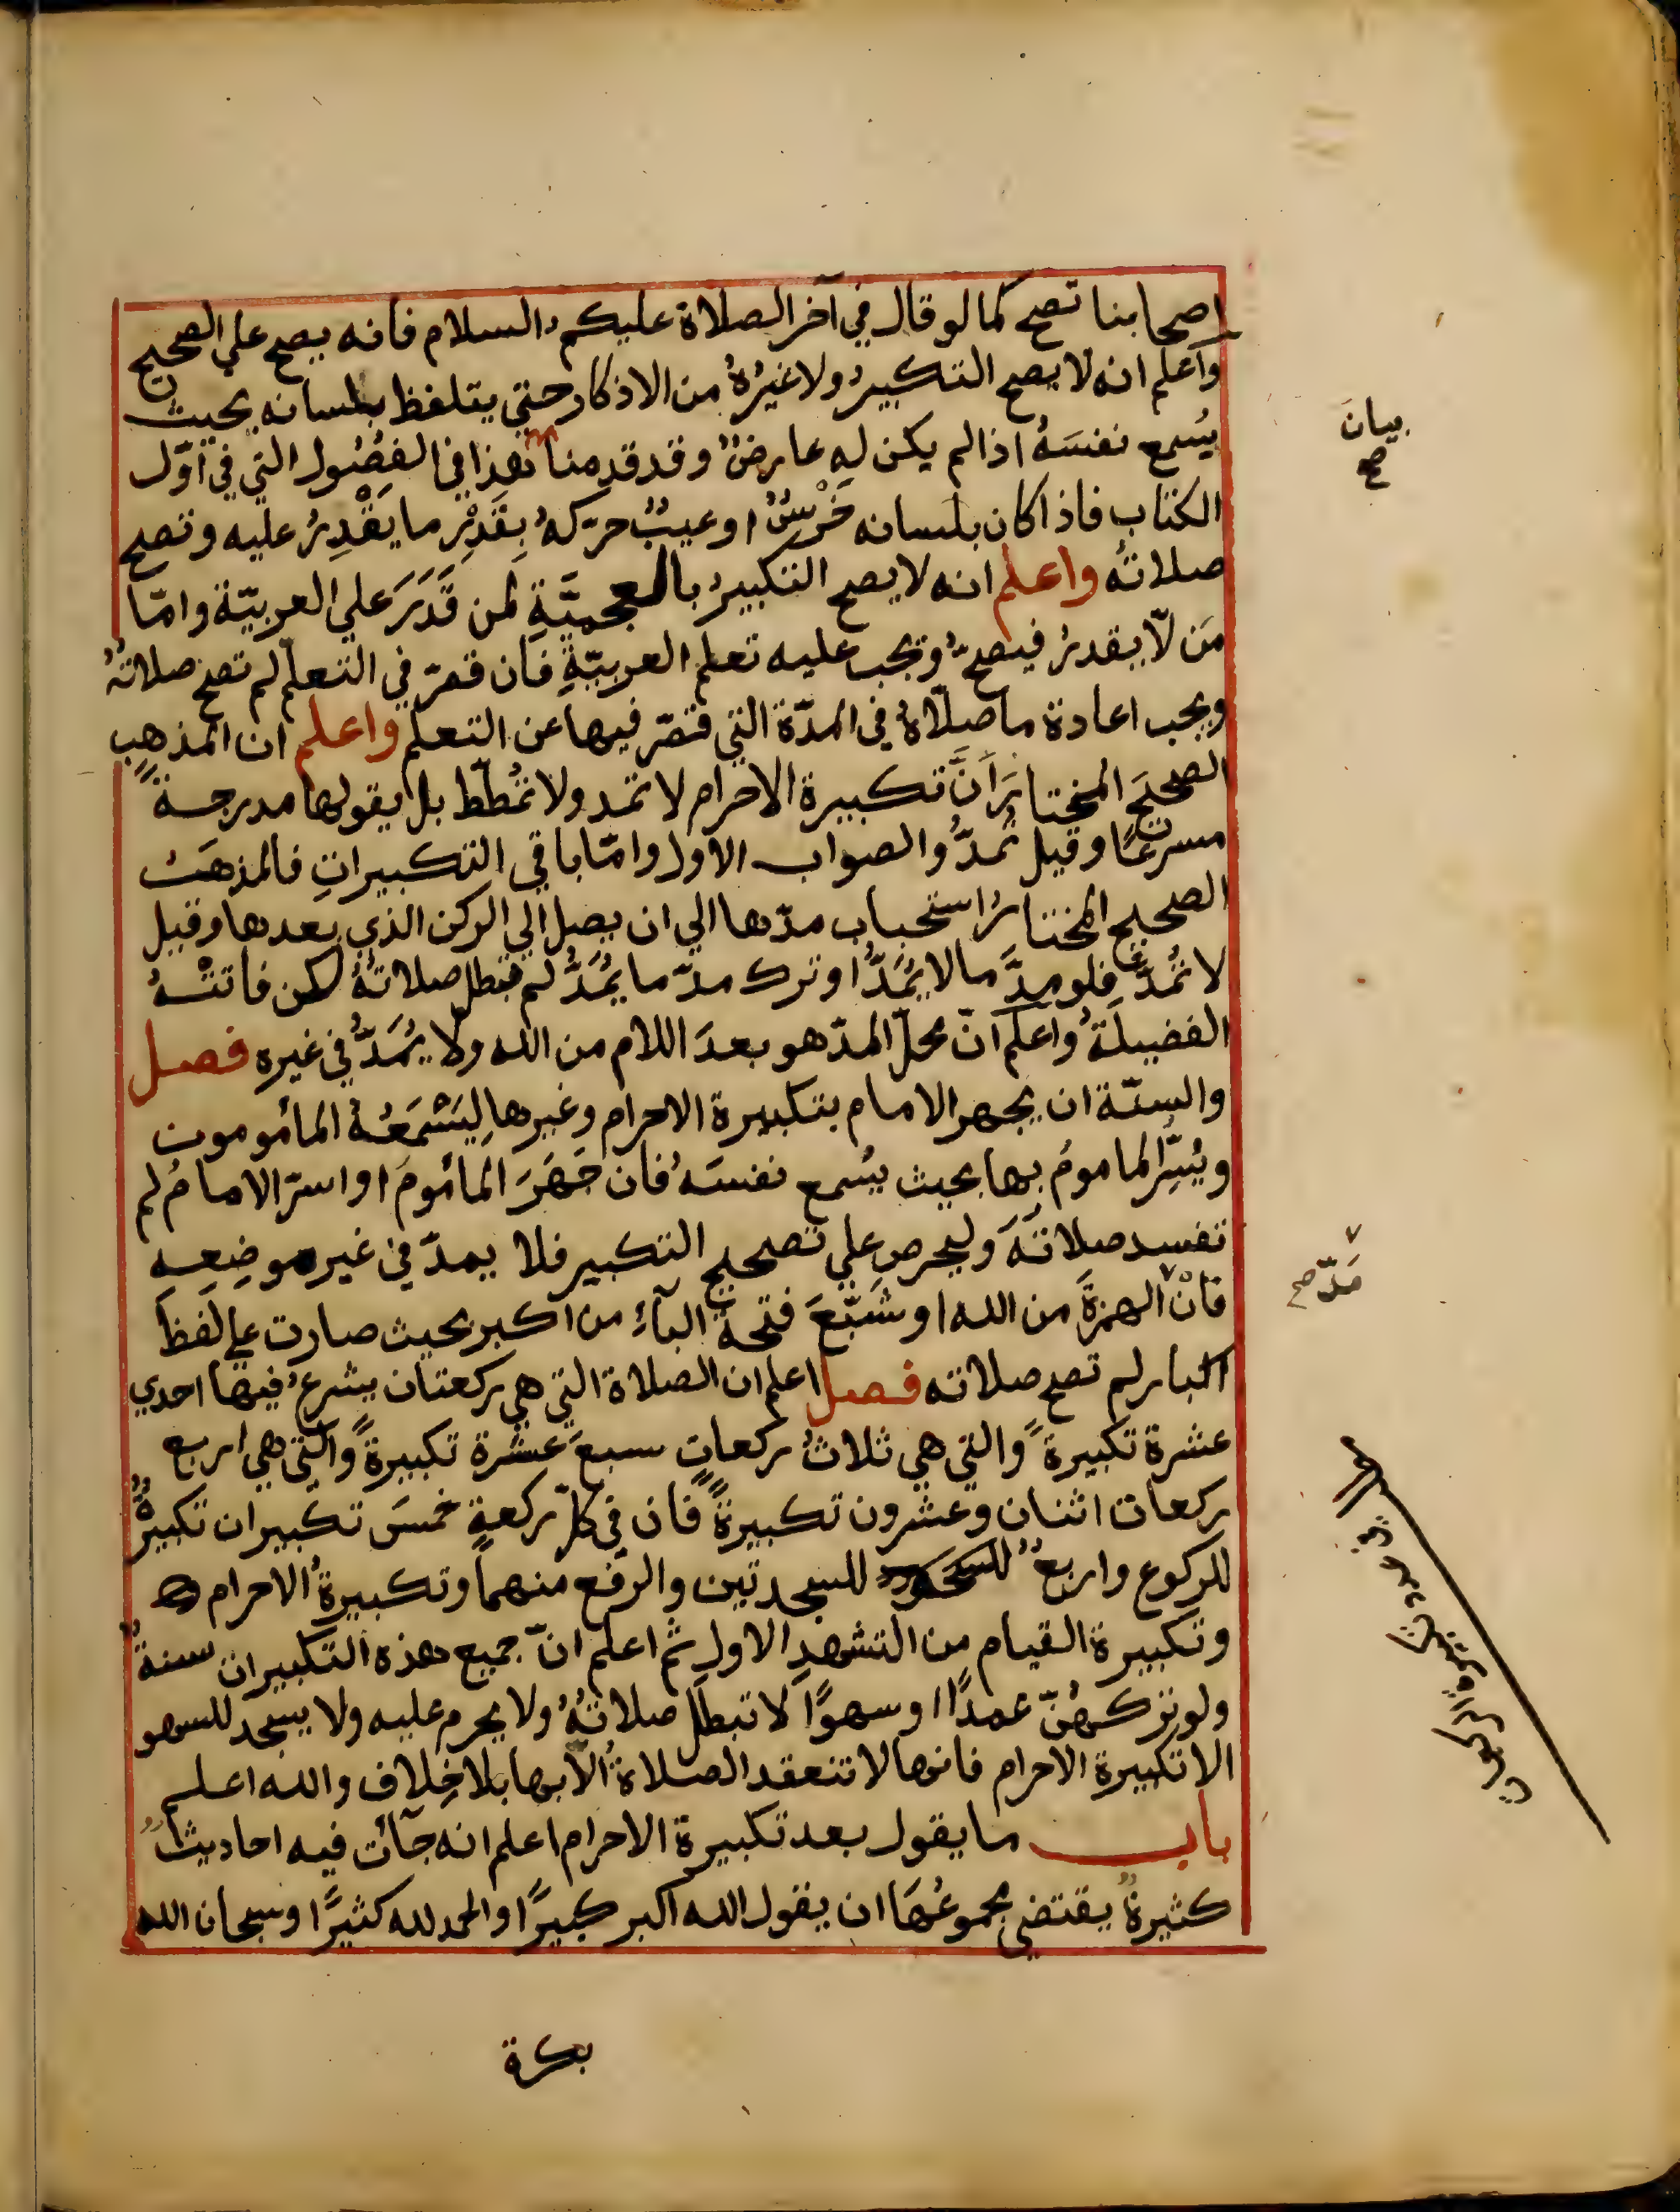 اصحابنا تصح كما لو قال في آخر الصلاة عليكم السلام فانه يصح علي الصحيح
واعلم انه لا يصح التكبير ولا غيرُهُ من الاذكار حتي يتلفظ بلسانه بحيث
يُسمع نفسَهُ اذا لم يكن له عارضٌ وقد قدمنا هذا في الفصُول التي في اوّل
الكتاب فاذا كان بلسانه خَرْسٌ او عيبٌ حرّكهُ بِقَدْرِ ما يَقْدِرُ عليه وتصح
صلاتهُ واعلم انه لا يصح التكبيرُ بالعجميَّةِ لمن قَدَرَ علي العربيّة وامّا
مَن لّا يقدرُ فيصحّ وتجب عليه تعلم العربيّةِ فان قصّر في التعلّم لم تصح صلاتهُ
ويجب اعادة ما صلّاهُ في المدّة التي قصّر فيها عن التعلم واعلم ان المذهب
الصحيحَ المختارَ اَنَّ تكبيرة الاحرام لا تمد ولا تمُطّط بل يقولها مدرجةً
مسرعًا وقيل تُمدُّ والصواب الاول وامّا باقي التكبيراتِ فالمذهبُ
الصحيح المختارُ استحباب مدّها الي ان يصل الي الركن الذي بعدها وقيل
لا تُمدُّ فلو مدَّ ما لا يُمَدُّ او ترك مدّ ما يُمَدُّ لم تبطل صلاتهُ لكن فاتتْهُ
الفضيلةُ واعلم انّ محلّ المدّ هو بعدَ اللام من الله ولا يُمَدُّ في غيره فصل
والسنّة ان يجهر الامام بتكبيرة الاحرام وغيرها لِيَسْمَعُهُ المأمومون
ويُسِّر الماموم بها بحيث يُسمع نفسَهُ فان جَهَرَ المأمومَ او اسرّ الامامُ لم
تفسد صلاتهَ وليحرص علي تصحيح التكبير فلا يمدّ في غير موضِعِه
فانْ الهمزةَ من الله او شَبَّعَ فتحة البآءِ من اكبر بحيث صارت علي لفظ
اكبار لم تصح صلاته فصل اعلم ان الصلاة التي هي ركعتان يشرعُ فيها احدي
عشرة تكبيرةً والتي هي ثلاثُ ركعاتٍ سبعَ عشرة تكبيرةً والتي هي اربع
ركعات اثنتان وعشرون تكبيرةً فان في كلّ ركعةٍ خمسَ تكبيرات تكبيرةٌ
للركوع واربعٌ للسجدتين والرفع منهما وتكبيرةُ الاحرام
وتكبيرة القيام من التشهد الاول ثم اعلم انّ جميع هذه التكبيرات سنةٌ
ولو تركهُنّ عمدًا او سهوًا لا تبطل صلاتهُ ولا يحرم عليه ولا يسجد للسهو
الا تكبيرة الاحرام فانها لا تنعقد الصلاةُ الّا بها بلا خِلاف والله اعلم
باب ما يقول بعد تكبيرة الاحرام اعلم انه جآئت فيه احاديثُ
كثيرةٌ يقتضي مجموعُهَا ان يقول الله اكبر كبيرًا والحمد لله كثيرًا وسبحان الله
بكرة
بيان
صح
مَدّ صح